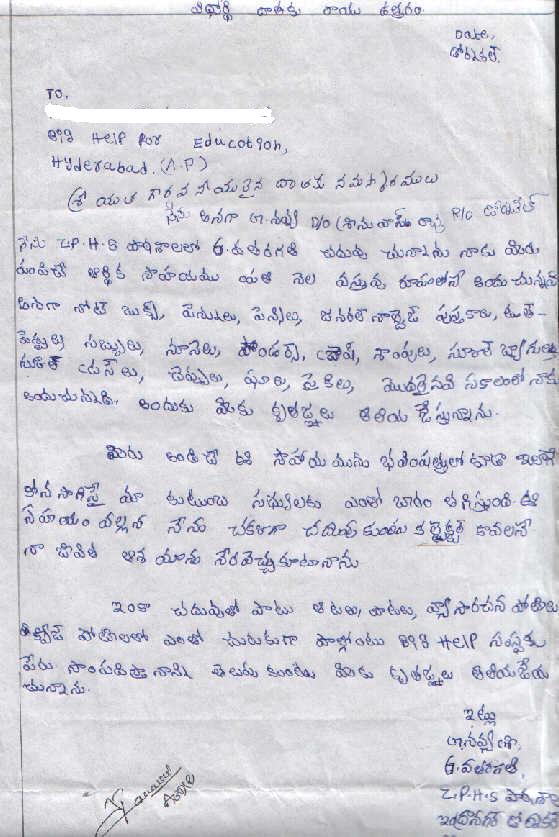 విద్యార్థి దాతకు రాయు ఉత్తరం
Date,
డోర్నకల్.
TO,
Help For Education,
Hyderabad. (A.P)
శ్రీ యుత గౌరవనీయులైన దాతకు నమస్కారములు
నేను అనగా D/O R/O డోర్నకల్
నేను Z.P.H.S పాఠశాలలో 6.వతరగతి చదువు చున్నాను నాకు మీరు
పంపిణి ఆర్థిక సాహయము ప్రతి నెల వస్తువు రూపంలోనే అందుచున్నవి
అనగా నోట్ బుక్స్, పెన్నులు, పెన్సిల్, జనరల్ నాలెడ్జ్ పుస్తకాలు, టూత్-
పేస్టులు సబ్బులు, నూనెలు, పౌండర్స్, షాంపులు, స్కూల్ బ్యాగులు
చెప్పులు, షూలు, మొదలైనవి సకాలంలో నాకు
అందుచున్నవి. అందుకు మీకు కృతజ్ఞలు తెలియ జేస్తున్నాను.
మీరు అందించే ఈ సాహాయమును భవిషత్తులో కూడా ఇలాగే
కోన సాగిస్తే మా కుటుంబ సభ్యులకు ఎంతో బారం తగ్గిస్తుంది. ఈ
సహాయం వల్లన నేను చక్కగా చదువు కుంటు కలెక్టర్ కావలనే
నా జీవిత ఆశయాను నేరవేర్చుకుంటానాను
ఇంకా చదువుతో పాటు ఆటలు, పాటలు, వ్యాసారచన పోటిలు
క్విజ్ పోటిలలో ఎంతో చురుకుగా పాల్గోంటు Help సంస్థకు
పేరు సాంపాదిస్తానాని తెలుపు కుంటు మీకు కృతజ్ఞలు తెలియజేయ
చున్నాను.
ఇట్లు
6.వతరగతి,
Z.P.H.S పాఠశాల